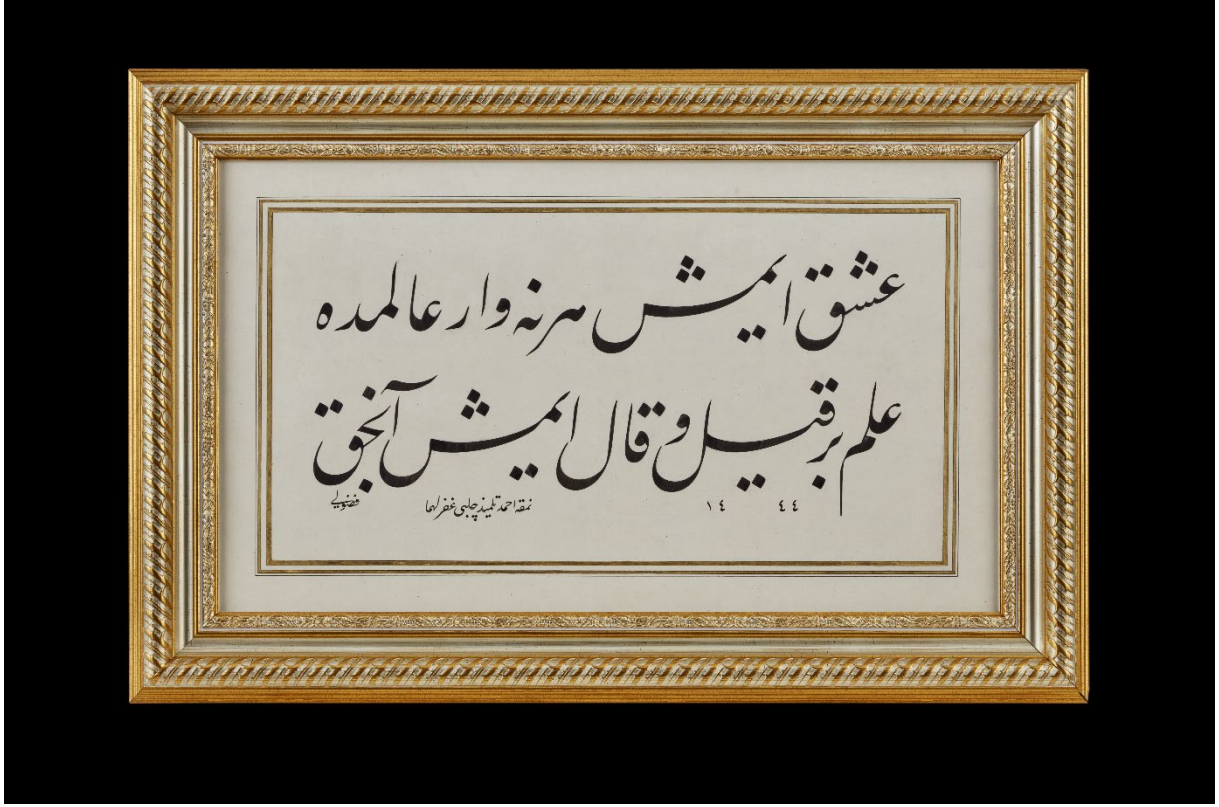 عشق ایمش هرنه وار عالمده
علم بر قیل و قال ایمش آنجق
فضولی
نمقه احمد تلمیذ چلبی غفر لهما
١٤ ٤٤